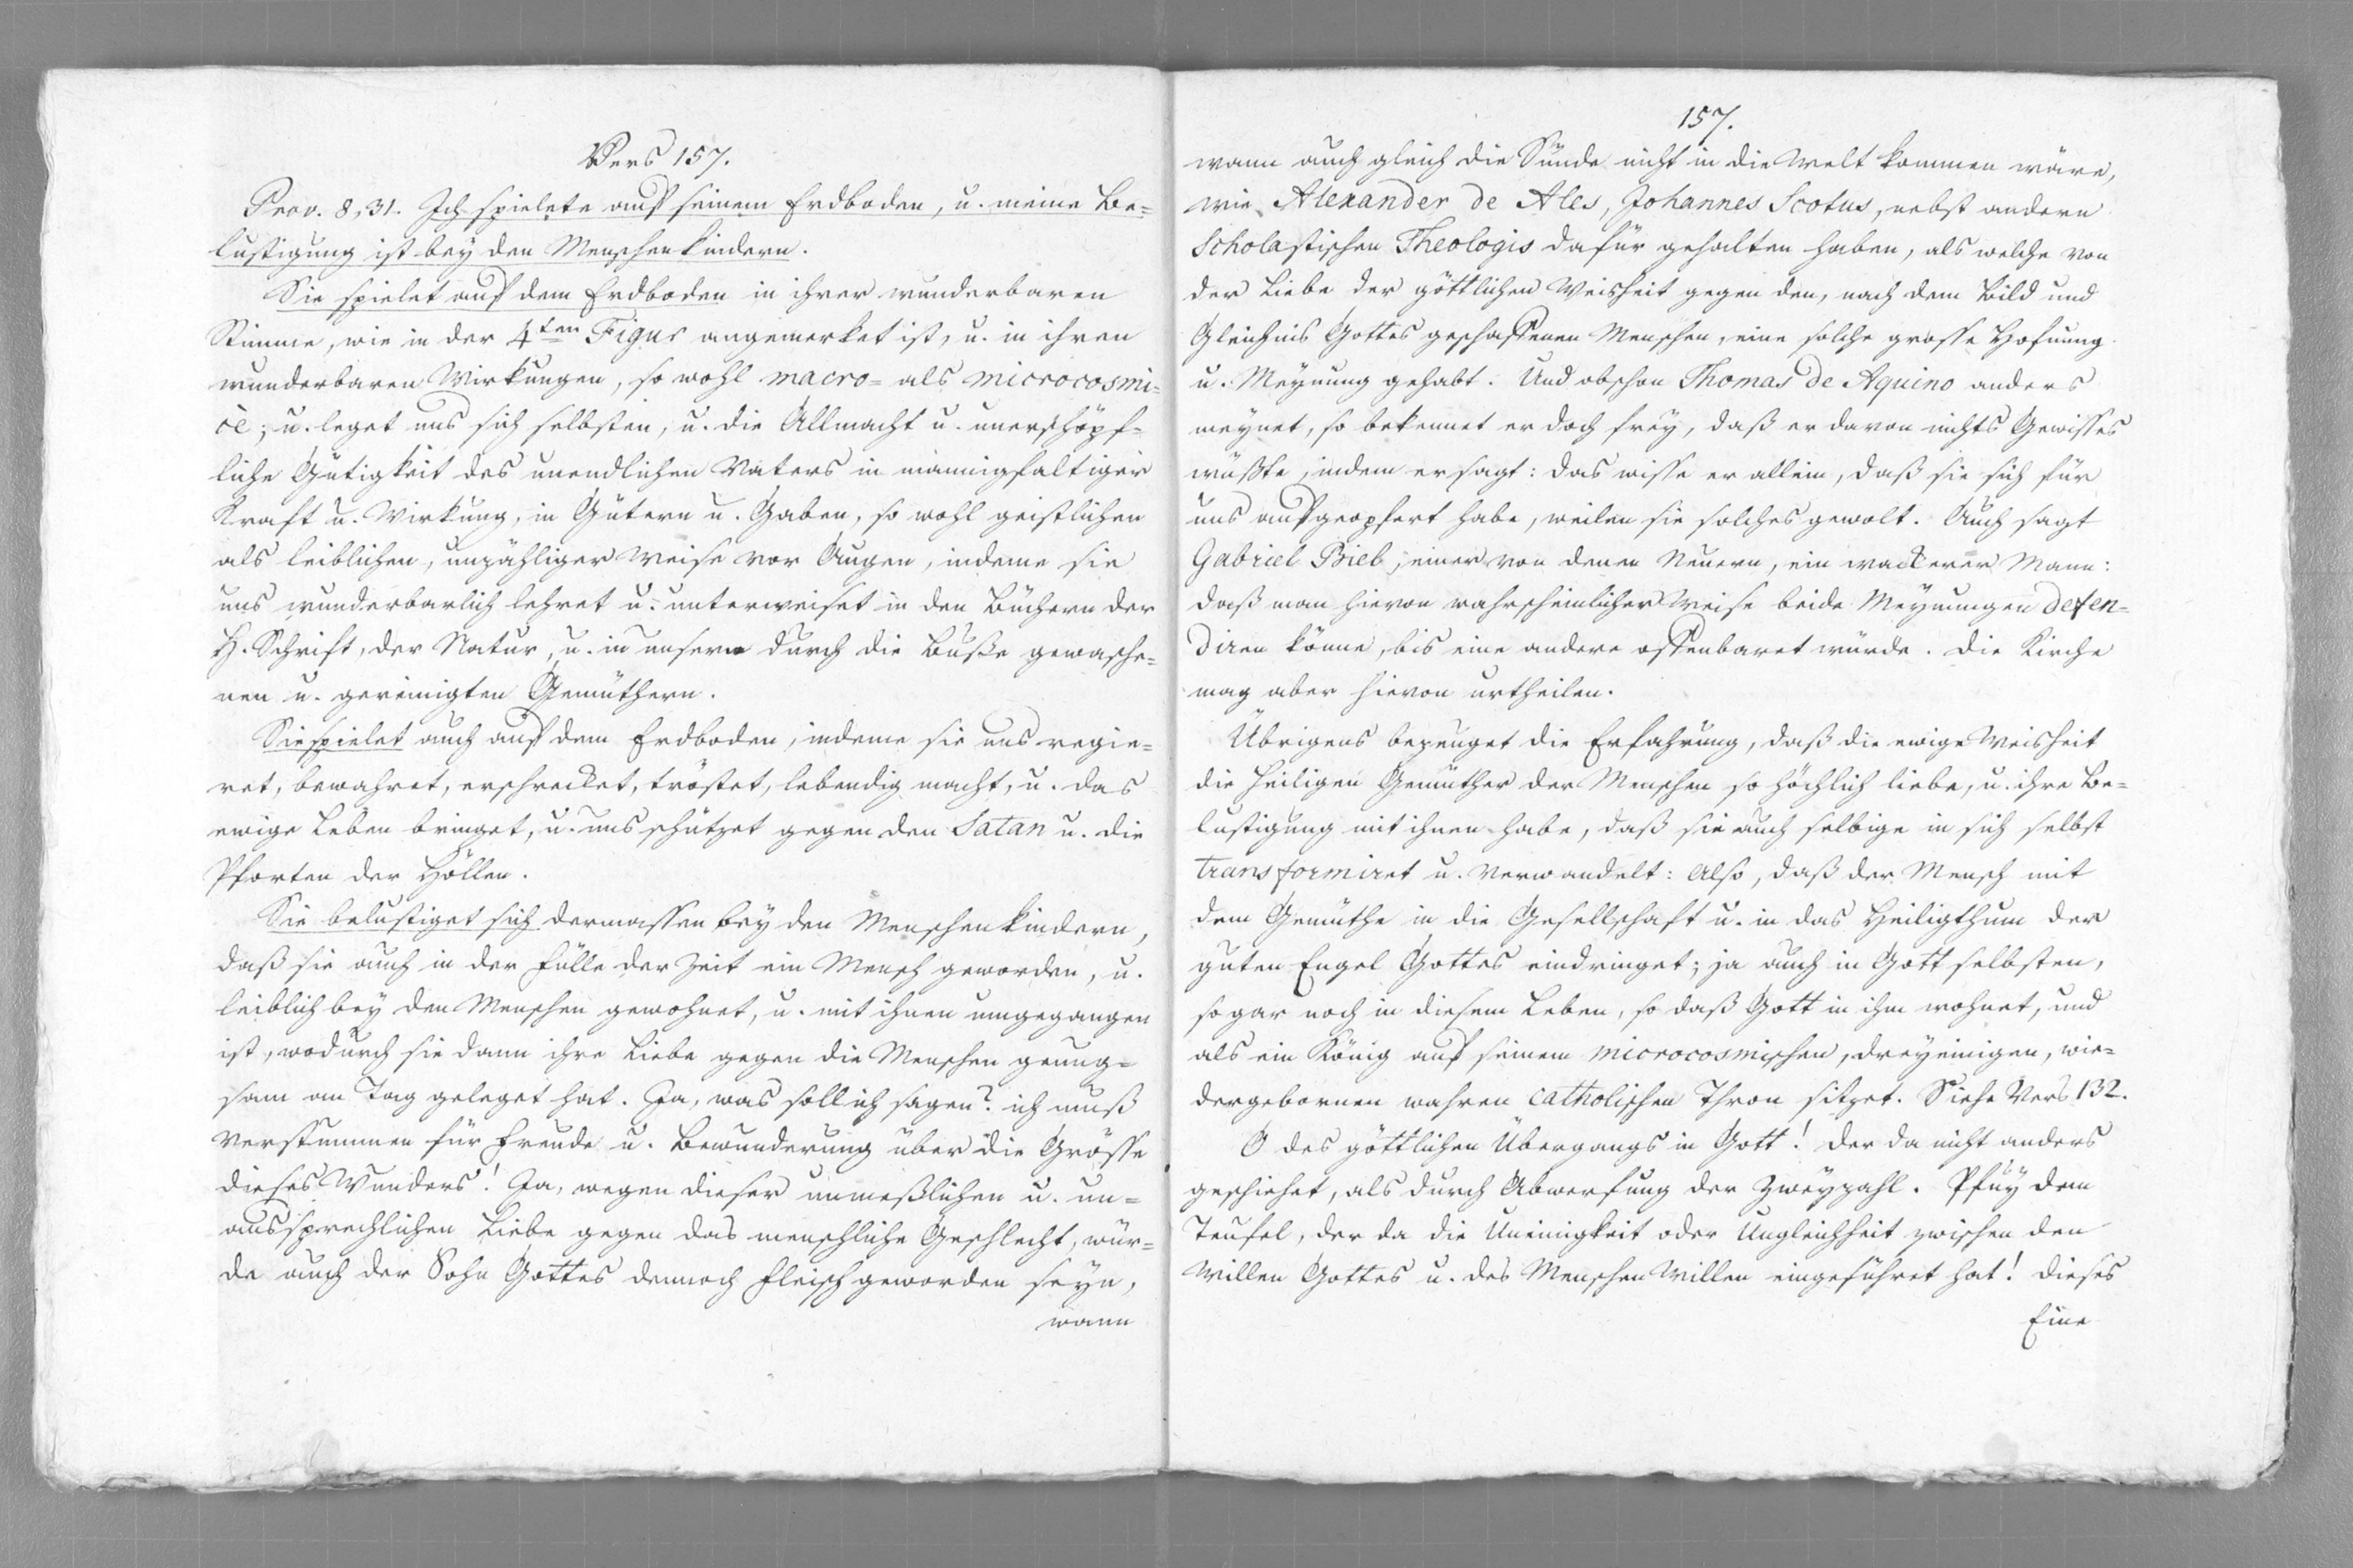 Vers 157.
Prov. 8, 31. Ich spielete auf seinem Erdboden, u. meine Be=
lustigung ist bey den Menschenkindern.
Sie spielet auf dem Erdboden in ihrer wunderbaren
Stimme, wie in der 4ten Figur angemerket ist, u. in ihren
wunderbaren Wirkungen, so wohl macro= als microcosmi=
cè; u. leget uns sich selbsten, u. die Allmacht u. unerschöpf=
liche Gütigkeit des unendlichen Vaters in mannigfaltiger
Kraft u. Wirkung, in Gütern u. Gaben, so wohl geistlichen
als leiblichen, unzähliger Weise vor Augen, indeme sie
uns wunderbarlich lehret u. unterweiset in den Büchern der
H. Schrift, der Natur, u. in unsern durch die Buße gewasche=
nen u. gereinigten Gemüthern.
Sie spielet auch auf dem Erdboden, indeme sie uns regie=
ret, bewahret, erschrecket, tröstet, lebendig macht, u. das
ewige Leben bringet, u. uns schützet gegen den Satan u. die
Pforten der Höllen.
Sie belustiget sich dermassen bey den Menschenkindern,
daß sie auch in der Fülle der Zeit ein Mensch geworden, u.
leiblich bey den Menschen gewohnet, u. mit ihnen umgegangen
ist, wodurch sie dann ihre Liebe gegen die Menschen genug=
sam an Tag geleget hat. Ja, was soll ich sagen? ich muß
verstummen für Freude u. Bewunderung über die Grösse
dieses Wunders! Ja, wegen dieser unmeßlichen u. un=
aussprechlichen Liebe gegen das menschliche Geschlecht, wür=
de auch der Sohn Gottes dennoch Fleisch geworden seyn,
wann
157.
wann auch gleich die Sünde nicht in die Welt kommen wäre,
wie Alexander de Ales, Johannes Scotus, nebst andern
Scholastischen Theologis dafür gehalten haben, als welche von
der Liebe der göttlichen Weisheit gegen den, nach dem Bild und
Gleichnis Gottes geschaffenen Menschen, eine solche grosse Hofnung
u. Meynung gehabt. Und obschon Thomas de Aquino anders
meynet, so bekennet er doch frey, daß er davon nichts Gewisses
wüßte, indem er sagt: das wisse er allein, daß sie sich für
uns aufgeopfert habe, weilen sie solches gewolt. Auch sagt
Gabriel Biel, einer von denen Neuern, ein wackerer Mann:
daß man hievon wahrscheinlicher Weise beide Meynungen defen=
diren könne, bis eine andere offenbaret würde. Die Kirche
mag aber hievon urtheilen.
Übrigens bezeuget die Erfahrung, daß die ewige Weisheit
die heiligen Gemüther der Menschen so höchlich liebe, u. ihre Be=
lustigung mit ihnen habe, daß sie auch selbige in sich selbst
transformiret u. verwandelt: Also, daß der Mensch mit
dem Gemüthe in die Gesellschaft u. in das Heiligthum der
guten Engel Gottes eindringet; ja auch in Gott selbsten,
sogar noch in diesem Leben, so daß Gott in ihm wohnet, und
als ein König auf seinem microcosmischen, dreyeinigen, wie=
dergebornen wahren catholischen Thron sitzet. Siehe Vers 132.
O des göttlichen Übergangs in Gott! der da nicht anders
geschiehet, als durch Abwerfung der Zweyzahl. Pfuy dem
Teufel, der da die Uneinigkeit oder Ungleichheit zwischen den
Willen Gottes u. des Menschen Willen eingeführet hat! Dieses
Eine